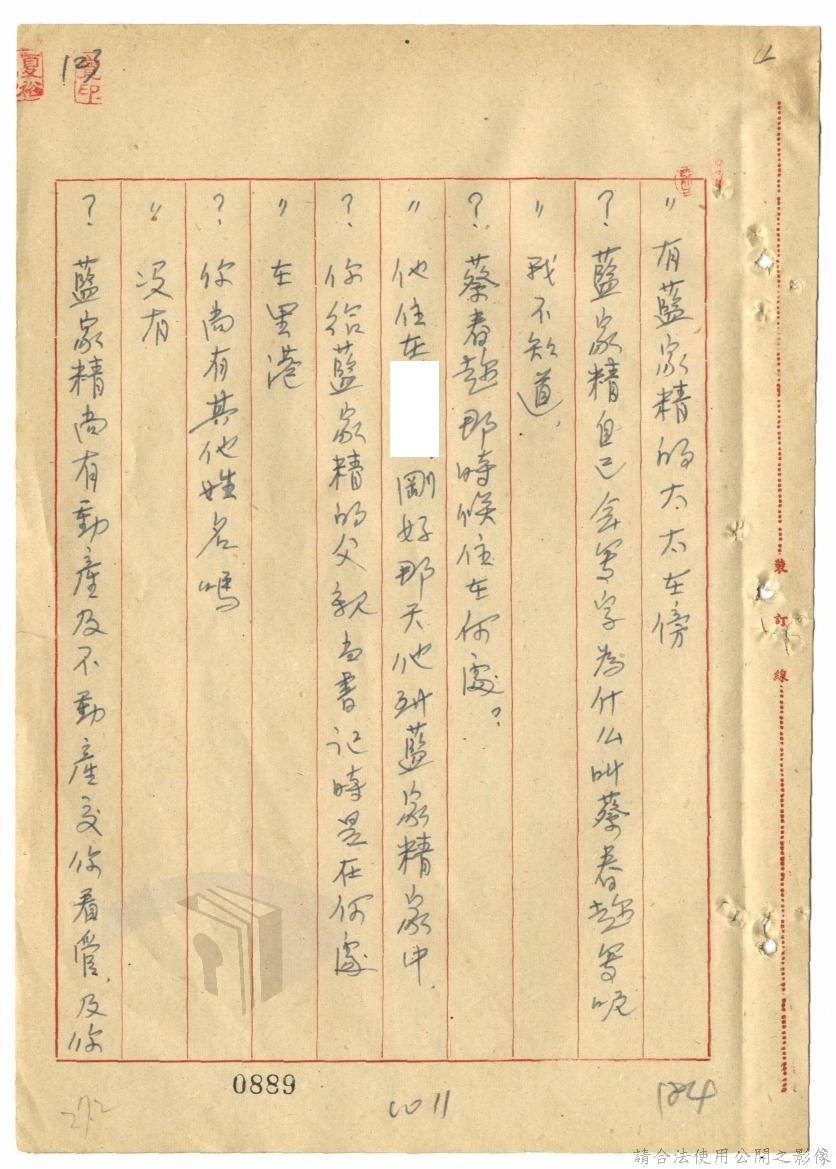 〃有藍家精的太太在傍
？藍家精自己会写字為什么叫蔡春趂写呢
〃我不知道、
？蔡春趂那時候住在何處？
〃他住在 剛好那天他到藍家精家中、
？你給藍家精的父親当書記時是在何處
〃在里港
？你尚有其他姓名嗎
〃没有
？藍家精尚有動產及不動產交你看管、及你
裝訂線
123
夏裕
印
0889
1011
124
272
請合法使用公開之影像